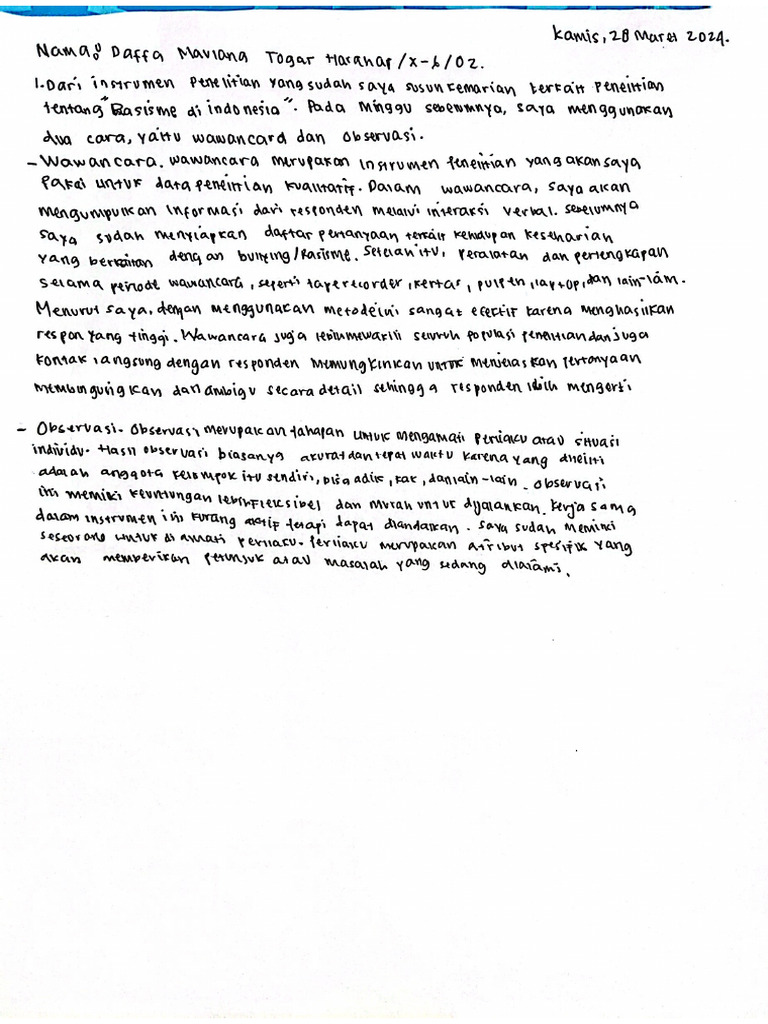 Kamis, 28 Maret 2024.
Nama: Daffa Maulana Togar Harahap / X-6 / 02.
1. Dari instrumen Penelitian yang sudah saya susun kemarian terkait Penelitian
tentang "Rasisme di indonesia". Pada Minggu sebelumnya, saya menggunakan
dua cara, yaitu wawancara dan observasi.
- Wawancara. wawancara merupakan instrumen penelitian yang akan saya
Pakai untuk data penelitian kualitatif. Dalam wawancara, saya akan
mengumpulkan informasi dari responden melalui interaksi verbal. sebelumnya
saya sudah menyiapkan daftar pertanyaan terkait kehidupan keseharian
yang berkaitan dengan bullying/Rasisme. Setelah itu, peralatan dan perlengkapan
selama periode wawancara, seperti tape recorder, kertas, pulpen, laptop, dan lain-lain.
Menurut saya, dengan menggunakan metode ini sangat efektif karena menghasilkan
respon yang tinggi. Wawancara juga lebih mewakili seluruh populasi penelitian dan juga
kontak langsung dengan responden memungkinkan untuk menjelaskan pertanyaan
membingungkan dan ambigu secara detail sehingga responden lebih mengerti
- Observasi. Observasi merupakan tahapan untuk mengamati perilaku atau situasi
individu. Hasil observasi biasanya akurat dan tepat waktu karena yang diteliti
adalah anggota kelompok itu sendiri, bisa adik, kak, dan lain-lain. observasi
ini memiliki keuntungan lebih fleksibel dan murah untuk dijalankan. Kerja sama
dalam instrumen ini kurang aktif tetapi dapat diandalkan. saya sudah memiliki
seseorang untuk di amati perilaku. Perilaku merupakan atribut spesifik yang
akan memberikan petunjuk atau masalah yang sedang dialami.